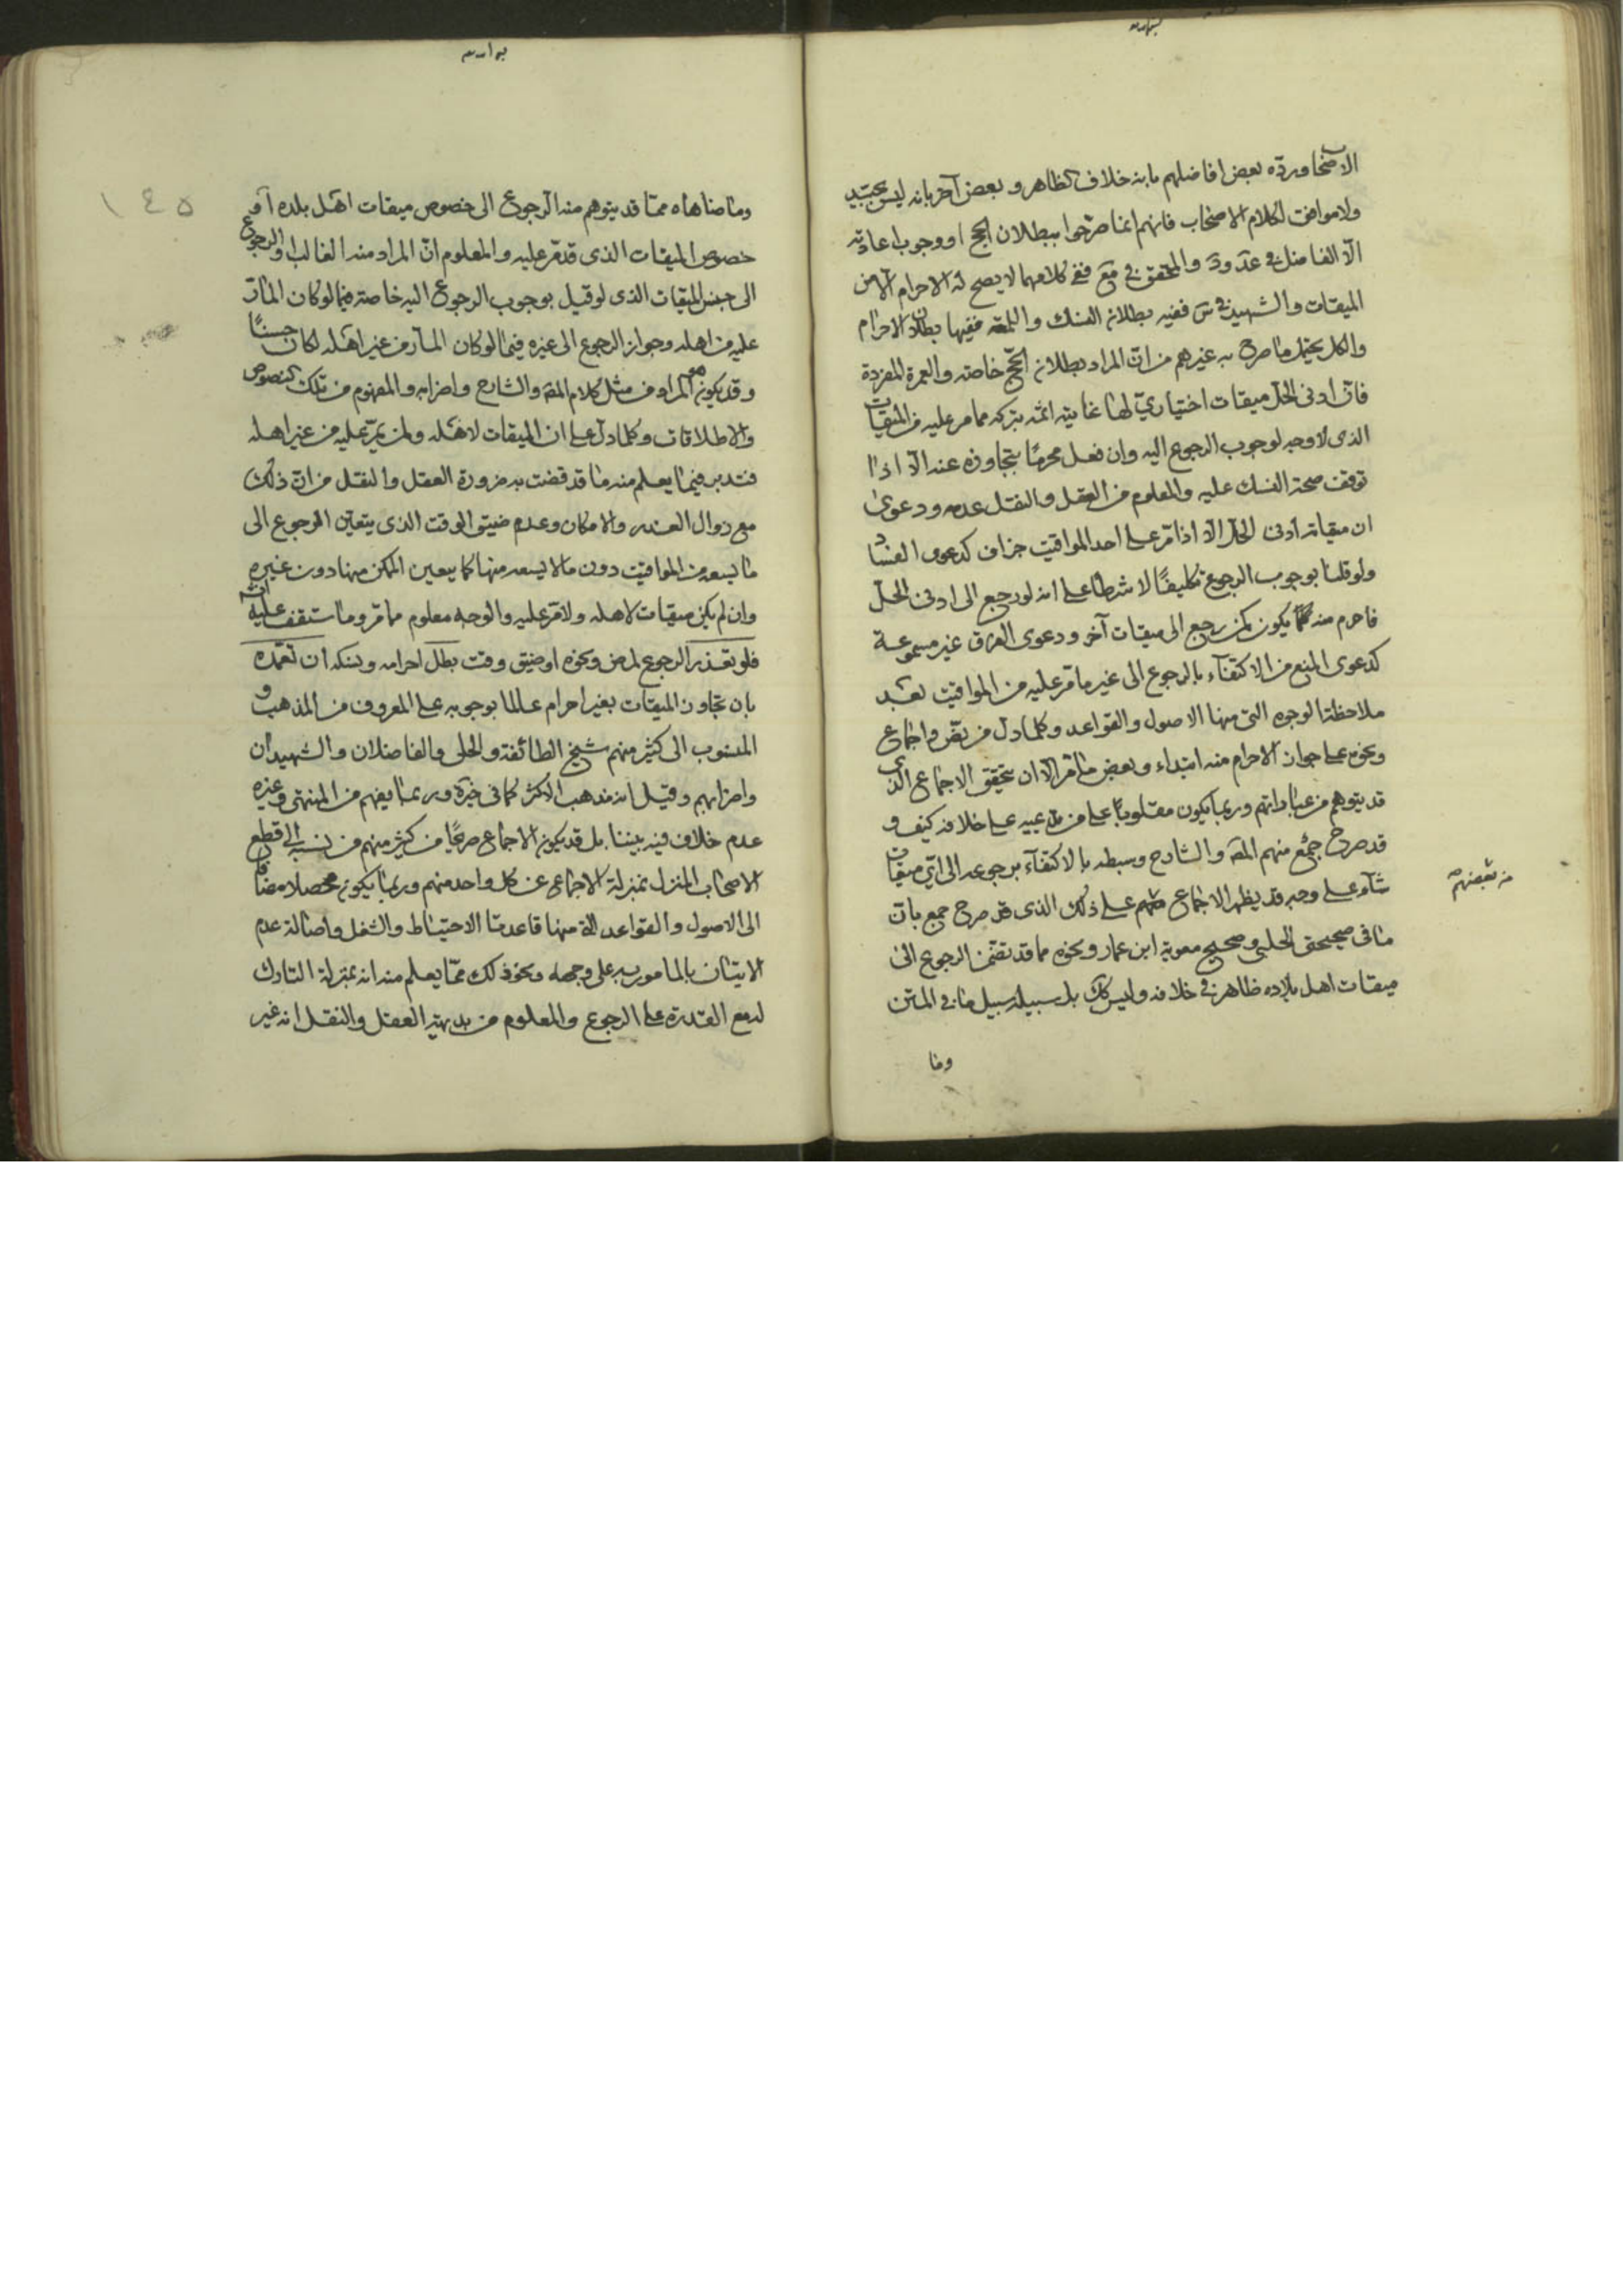 الاصحاب ورده بعض افاضلهم بانه خلاف الظاهر و بعض آخر بانه ليس بجيد
ولا موافق لكلام الاصحاب فانهم انما صرحوا ببطلان الحج او وجوب اعادته
الا الفاضل في عد ود والمحقق في مع ففي كلامهما لا يصح له الاحرام الا من
الميقات والشهيد في س ففيه بطلان النسك واللمعة ففيها بطلان الاحرام
والكل يحتمل ما صرح به غيرهم من ان المراد بطلان الحج خاصة والعمرة المفردة
فان ادنى الحل ميقات اختياري لها غايته اثمه بتركه مما مر عليه من الميقات
الذى لا وجه لوجوب الرجوع اليه وان فعل محرما بتجاوزه عنه الا اذا
توقفت صحة النسك عليه والمعلوم من العقل والنقل عدمه ودعوى
ان ميقاته ادنى الحل الا اذا مر على احد المواقيت جزاف كدعوى الفساد
ولو قلنا بوجوب الرجوع تكليفًا لا شرطا على انه لو رجع الى ادنى الحل
فاحرم منه يكون كمن رجع الى ميقات آخر ودعوى الفرق غير مسموعة
كدعوى المنع من الاكتفاء بالرجوع الى غير ما مر عليه من المواقيت بعد
ملاحظة الوجوه التى منها الاصول والقواعد وكلما دل من نص واجماع
ونحوه على جواز الاحرام منه ابتداء وبعض ما مر الا ان يتحقق الاجماع الذى
قد يتوهم من عباراتهم وربما يكون مقلوبا على من يدعيه على خلافه كيف و
قد صرح جمع منهم المص والشارح وسبطه بالاكتفاء برجوعه الى اي ميقات
شاء على وجه قد يظهر الاجماع منهم على ذلك الذى قد صرح جمع بان
ما فى صحيحتى الحلبي وصحيح معوية ابن عمار ونحوه مما قد تضمن الرجوع الى
ميقات اهل بلاده ظاهر في خلافه وليس كك بل سبيله سبيل ما في المتن
وما
من بعضهم
١٤٥
وما ضاهاه مما قد يتوهم منه الرجوع الى خصوص ميقات اهل بلده او
خصوص الميقات الذى قد مر عليه والمعلوم ان المراد منه الغالب والرجوع
الى جنس الميقات الذى لو قيل بوجوب الرجوع اليه خاصة فيما لو كان المار
عليه من اهله وجواز الرجوع الى غيره فيما لو كان المار من غير اهله لكان حسنًا
وقد يكون هو المراد من مثل كلام المص والشارح واضرابه والمفهوم من تلك النصوص
والاطلاقات وكلما دل على ان الميقات لاهله ولمن يمر عليه من غير اهله
فتدبر فيما يعلم منه ما قد قضت به ضرورة العقل والنقل من ان ذلك
مع زوال العذر والامكان وعدم ضيق الوقت الذى يتعين الرجوع الى
ما يسعه من المواقيت دون ما لا يسعه منها كما يتعين الممكن منها دون غيره
وان لم يكن ميقات لاهله ولا مر عليه والوجه معلوم مما مر وما ستقف عليه انش
فلو تعذر الرجوع لمرض ونحوه او ضيق وقت بطل احرامه ونسكه ان تعمده
بان تجاوز الميقات بغير احرام عالما بوجوبه على المعروف من المذهب و
المنسوب الى كثير منهم شيخ الطائفة والحلى والفاضلان والشهيدان
واضرابهم وقيل انه مذهب الاكثر كما فى خيرة وربما يفهم من المنتهى وغيره
عدم خلاف فيه بيننا بل قد يكون الاجماع صريحًا من كثير منهم من نسبه الى قطع
الاصحاب المنزل بمنزلة الاجماع عن كل واحد منهم وربما يكون محصلا مضافا
الى الاصول والقواعد التى منها قاعدتا الاحتياط والشغل واصالة عدم
الاتيان بالمامور به على وجهه ونحو ذلك مما يعلم منه انه بمنزلة التارك
له مع القدرة على الرجوع والمعلوم من بديهة العقل والنقل انه غير